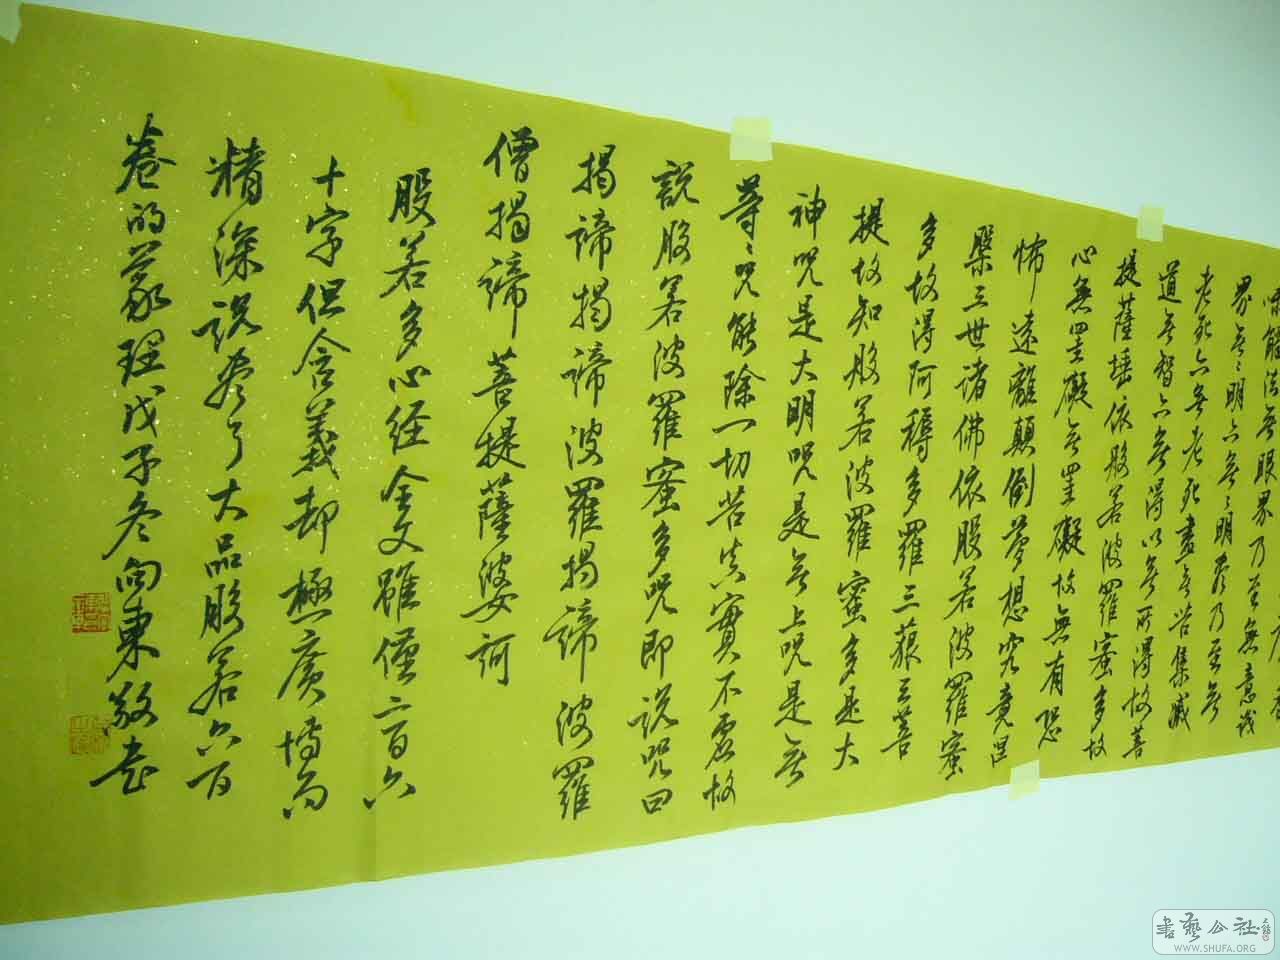 界無〻明亦無〻明盡乃至無
老死亦無老死盡無苦集滅
道無智亦無得以無所得故菩
提薩埵依般若波羅蜜多故
心無罣礙無罣礙故無有恐
怖遠離顛倒夢想究竟涅
槃三世諸佛依般若波羅蜜
多故得阿耨多羅三藐三菩
提故知般若波羅蜜多是大
神咒是大明咒是無上咒是無
等〻咒能除一切苦真實不虛故
說般若波羅蜜多咒即說咒曰
揭諦揭諦波羅揭諦波羅
僧揭諦菩提薩婆訶
般若多心经全文雖僅二百六
十字但含義却極廣博而
精深説盡了大品般若六百
卷的義理戊子冬向東敬書
書藝公社
WWW.SHUFA.ORG